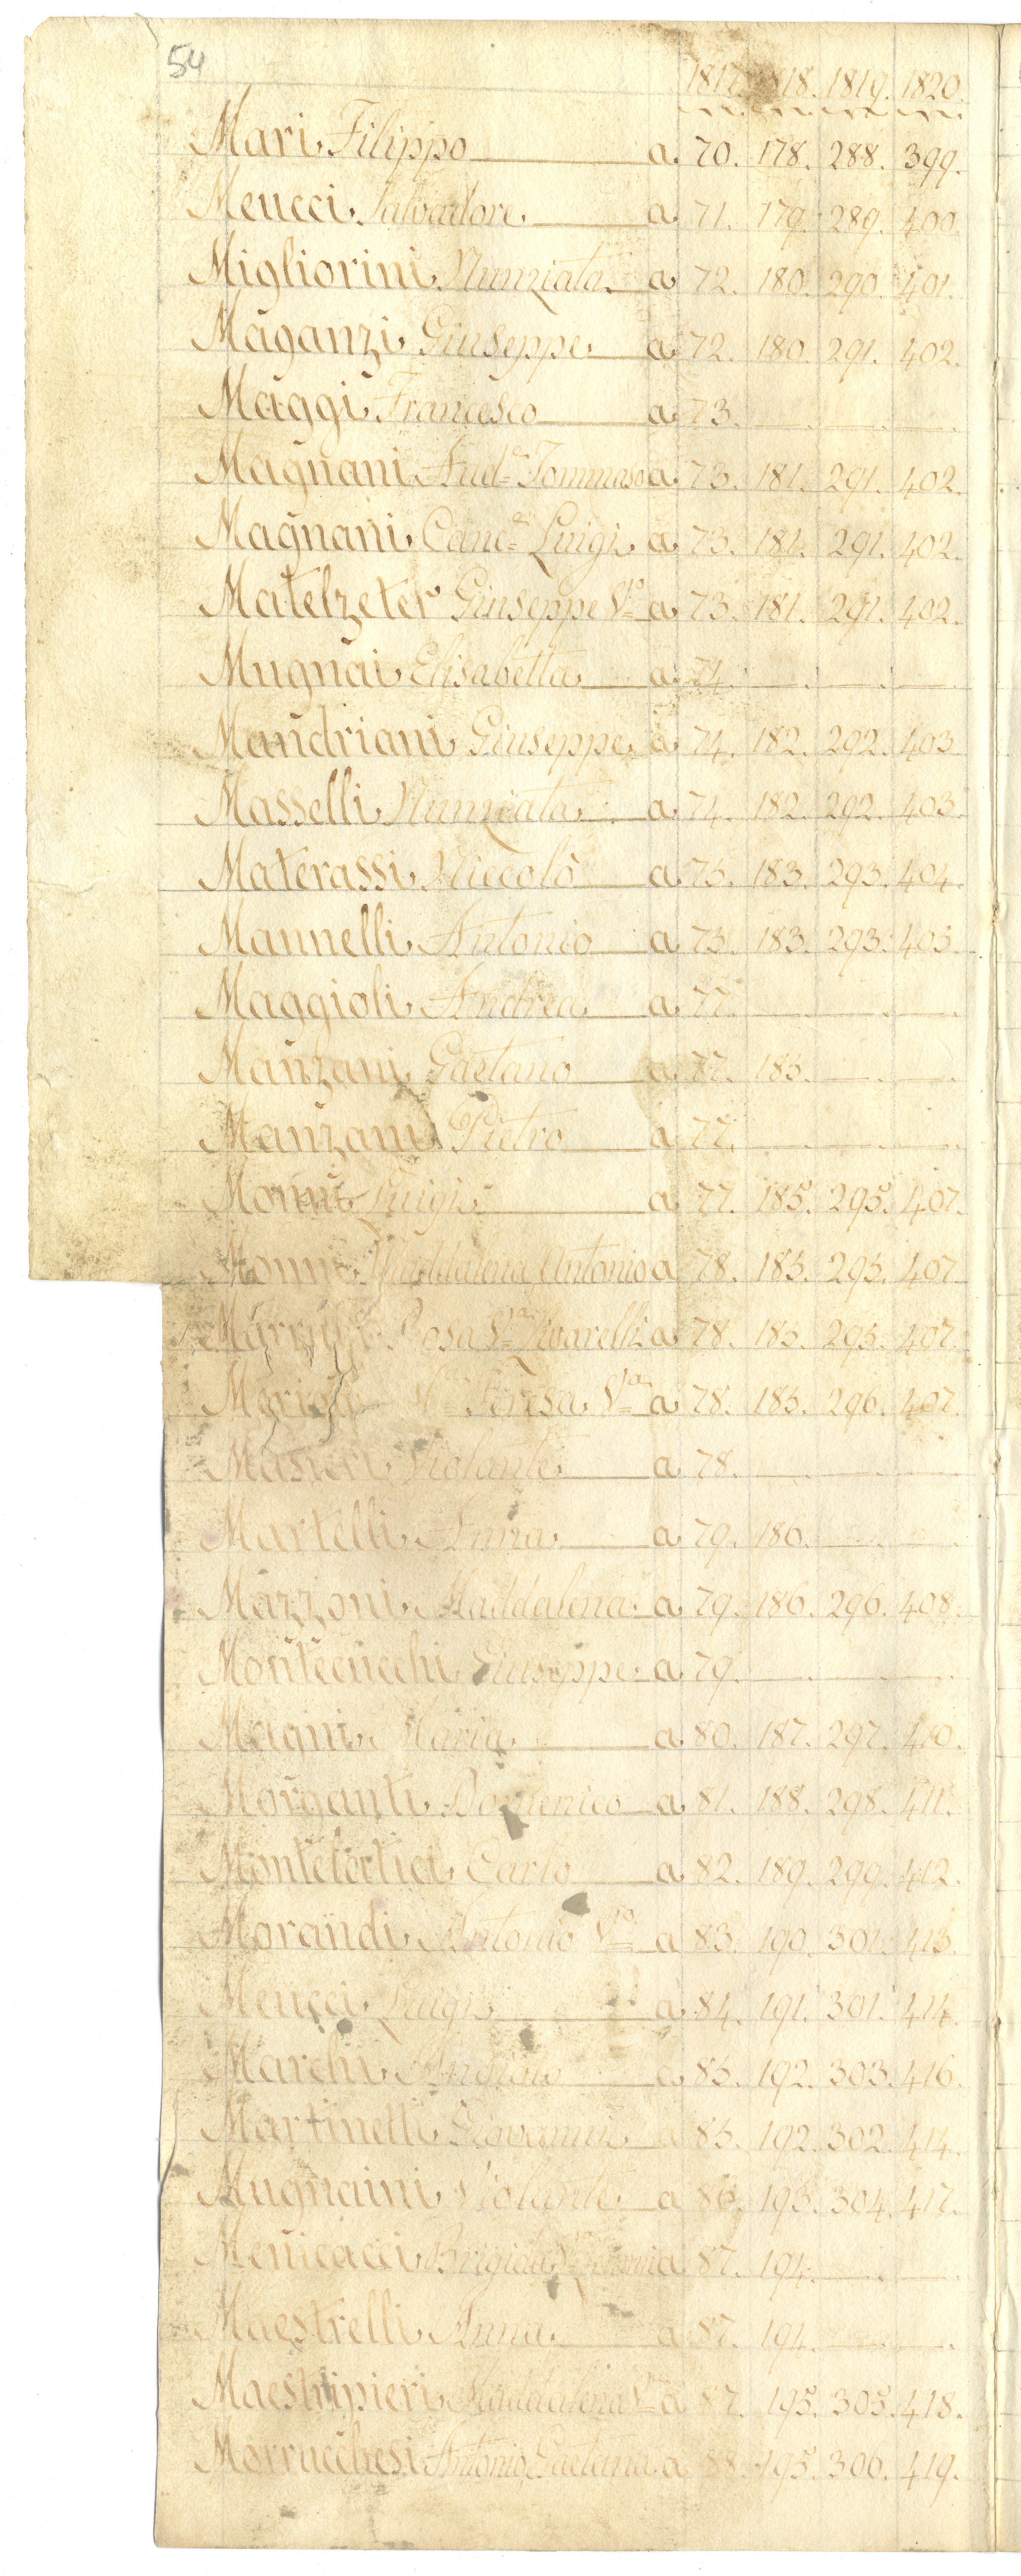 54
1817. 1818. 1819. 1820.
Mari Filippo a 70. 178. 288. 399.
Meucci Salvadore a 71. 179. 289. 400.
Migliorini Nunziata a 72. 180. 290. 401.
Maganzi Giuseppe a 72. 180. 291. 402.
Maggi Francesco a 73.
Magnani Aud.e Tommaso a 73. 181. 291. 402.
Magnani Canc.e Luigi a 73. 181. 291. 402.
Matelzeter Giuseppe V.o a 73. 181. 291. 402.
Mugnai Elisabetta a 74.
Mandriani Giuseppe a 74. 182. 292. 403.
Masselli Nunziata a 74. 182. 292. 403.
Materassi Niccolò a 75. 183. 293. 404.
Mannelli Antonio a 75. 183. 293. 405.
Maggioli Andrea a 77.
Manzani Gaetano a 77. 185.
Manzani Pietro a 77.
Monni Luigi a 77. 185. 295. 407.
Monni Maddalena Antonio a 78. 185. 295. 407.
Rosa V.a a 78. 185. 295. 407.
Teresa V.a a 78. 185. 296. 407.
Masieri Violante a 78.
Martelli Anna a 79. 186.
Mazzoni Maddalena a 79. 186. 296. 408.
Montecucchi Giuseppe a 79.
Magni Maria a 80. 187. 297. 410.
Morganti Domenico a 81. 188. 298. 411.
Carlo a 82. 189. 299. 412.
Morandi Antonio V.o a 83. 190. 301. 413.
Meucci Luigi a 84. 191. 301. 414.
Marchi a 85. 192. 303. 416.
Martinelli Giovanni a 85. 192. 302. 414.
Mugnaini Violante a 86. 193. 304. 417.
Menicacci Brigida a 87. 194.
Maestrelli Anna a 87. 194.
Maestripieri Maddalena V.a a 87. 195. 305. 418.
Morrucchesi Antonio Gaetana a 88. 195. 306. 419.